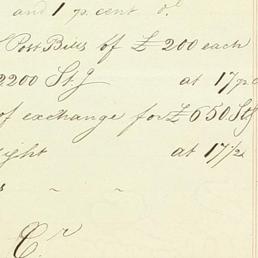 and 1 p. cent do
Post Bills of £ 200 each
2200 Stg at 17 p c
of exchange for £ 650 Stg
ight at 17 1/2
s " "
Cr